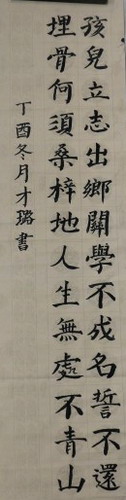 孩兒立志出鄉關學不成名誓不還
埋骨何須桑梓地人生無處不青山
丁酉冬月才璐書